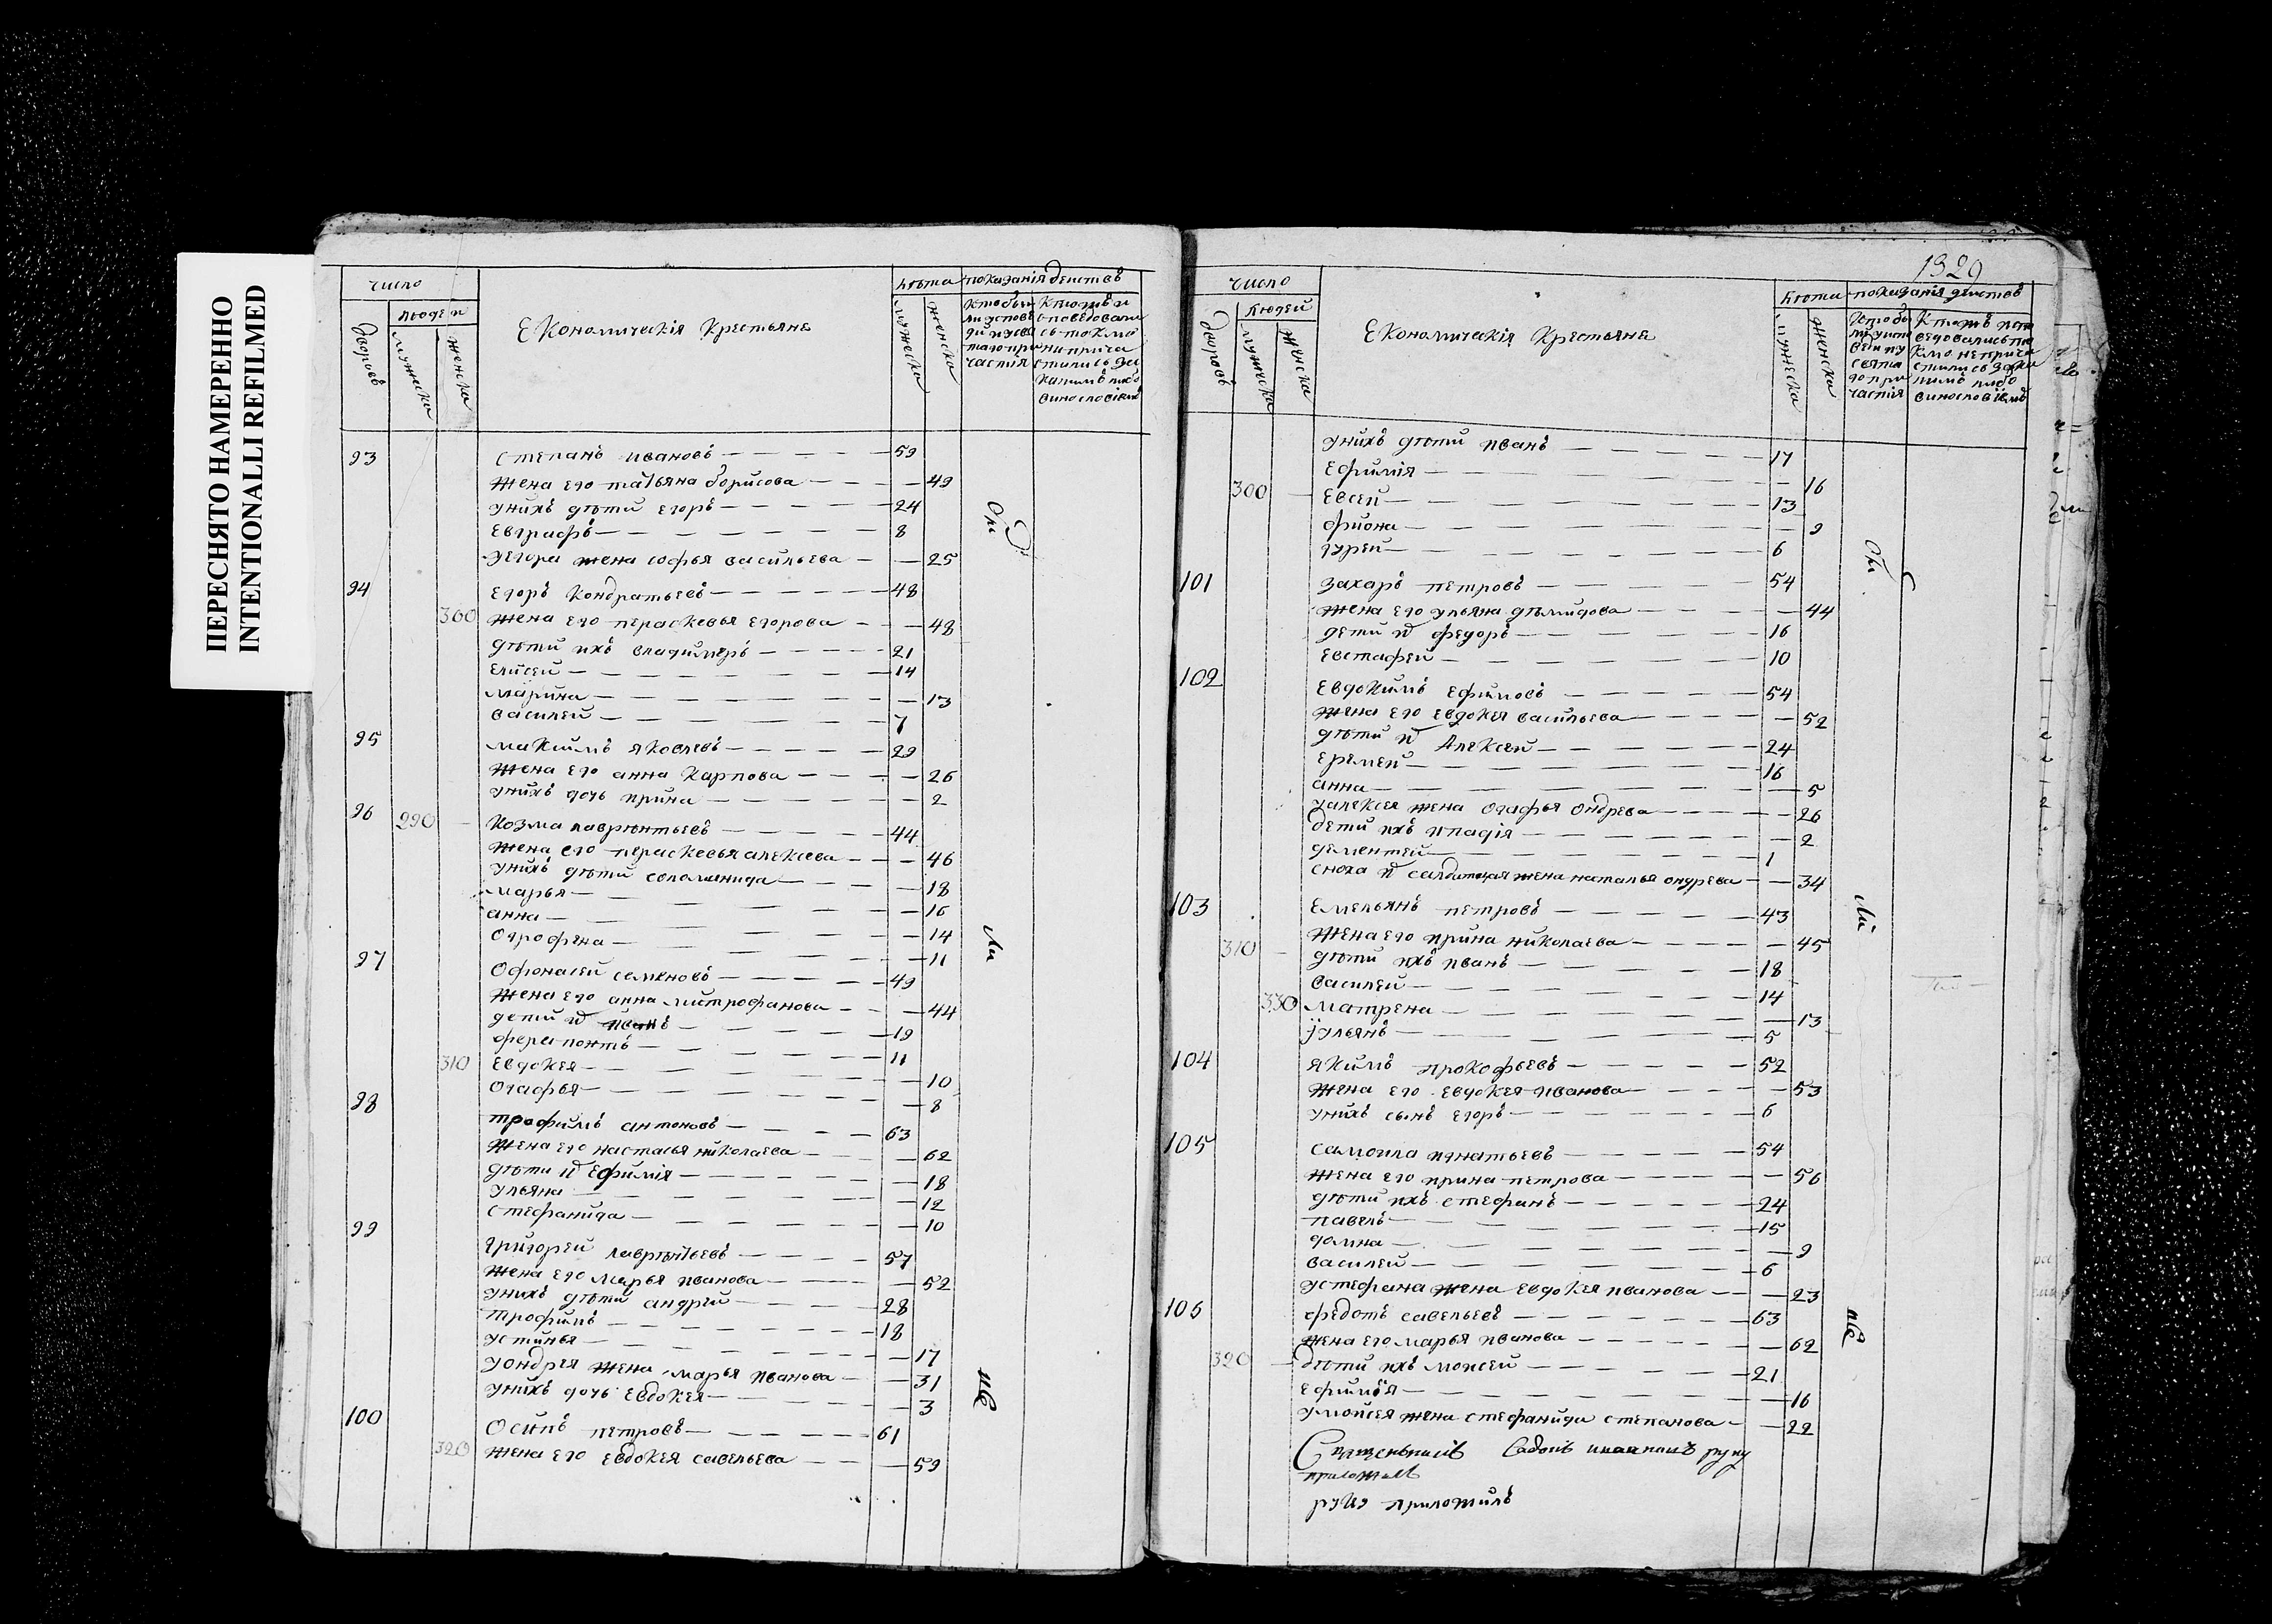 ПЕРЕСНЯТО НАМЕРЕННО
INTENTIONALLI REFILMED
число
людеи
дворовъ
мужеска
женска
Економическія Крестьяне
лѣта
мужеска
женска
показанія деиствъ
93 степанъ ивановъ 59
жена его татьяна борисова 49
унихъ дѣти егоръ 24
евграфъ 8
уегора жена софья васильева 25
94 егоръ кондратьевъ 48
300 жена его пераскевья егорова 48
дѣти ихъ владимеръ 21
елисеи 14
марина 13
василеи 7
95 максимъ яковлевъ 29
жена его анна карпова 26
унихъ дочь ирина 2
96 290 козма лаврентьевъ 44
жена его пераскевья алексеева 46
унихъ дѣти соломянида 18
марья 16
анна 14
Огрофена 11
97 Офонасеи семеновъ 49
жена его анна митрофанова 44
дети их иванъ 19
ферапонтъ 11
310 евдокея 10
Огафья 8
98 трофимъ антоновъ 63
жена его настасья николаева 62
дѣти их ефимія 18
ульяна 12
стефанида 10
99 григореи лаврентьевъ 57
жена его марья иванова 52
унихъ дѣти андреи 28
трофимъ 18
устинья 17
уондрея жена марья иванова 31
унихъ дочь евдокея 3
100 Осипъ петровъ 61
320 жена его евдокея савельева 59
1329
число
людеи
дворовъ
мужеска
женска
Економическія Крестьяне
лѣта
мужеска
женска
показанія деиствъ
унихъ дѣти иванъ 17
ефимія 16
300 евсеи 13
фиона 9
гуреи 6
101 захаръ петровъ 54
жена его ульяна дѣмидова 44
дети их федоръ 16
евстафеи 10
102 евдокимъ ефимовъ 54
жена его евдокея васильева 52
дѣти их Алексеи 24
еремеи 16
анна 5
уалексея жена огафья ондреева 26
дети ихъ ипадія 2
дементеи 1
сноха их салдатская жена наталья ондреева 34
103 емельянъ петровъ 43
жена его ирина николаева 45
310 дѣти ихъ иванъ 18
василеи 14
330 матрена 13
ульянъ 5
104 якимъ прокофьевъ 52
жена его евдокея иванова 53
унихъ сынъ егоръ 6
105 самоила игнатьевъ 54
жена его ирина петрова 56
дѣти ихъ стефанъ 24
павелъ 15
домна 9
василеи 6
устефана жена евдокея иванова 23
106 федотъ савельевъ 63
жена его марья иванова 62
320 дѣти ихъ моисеи 21
ефимія 16
умоисея жена стефанида степанова 22
руку
приложилъ
руку приложилъ